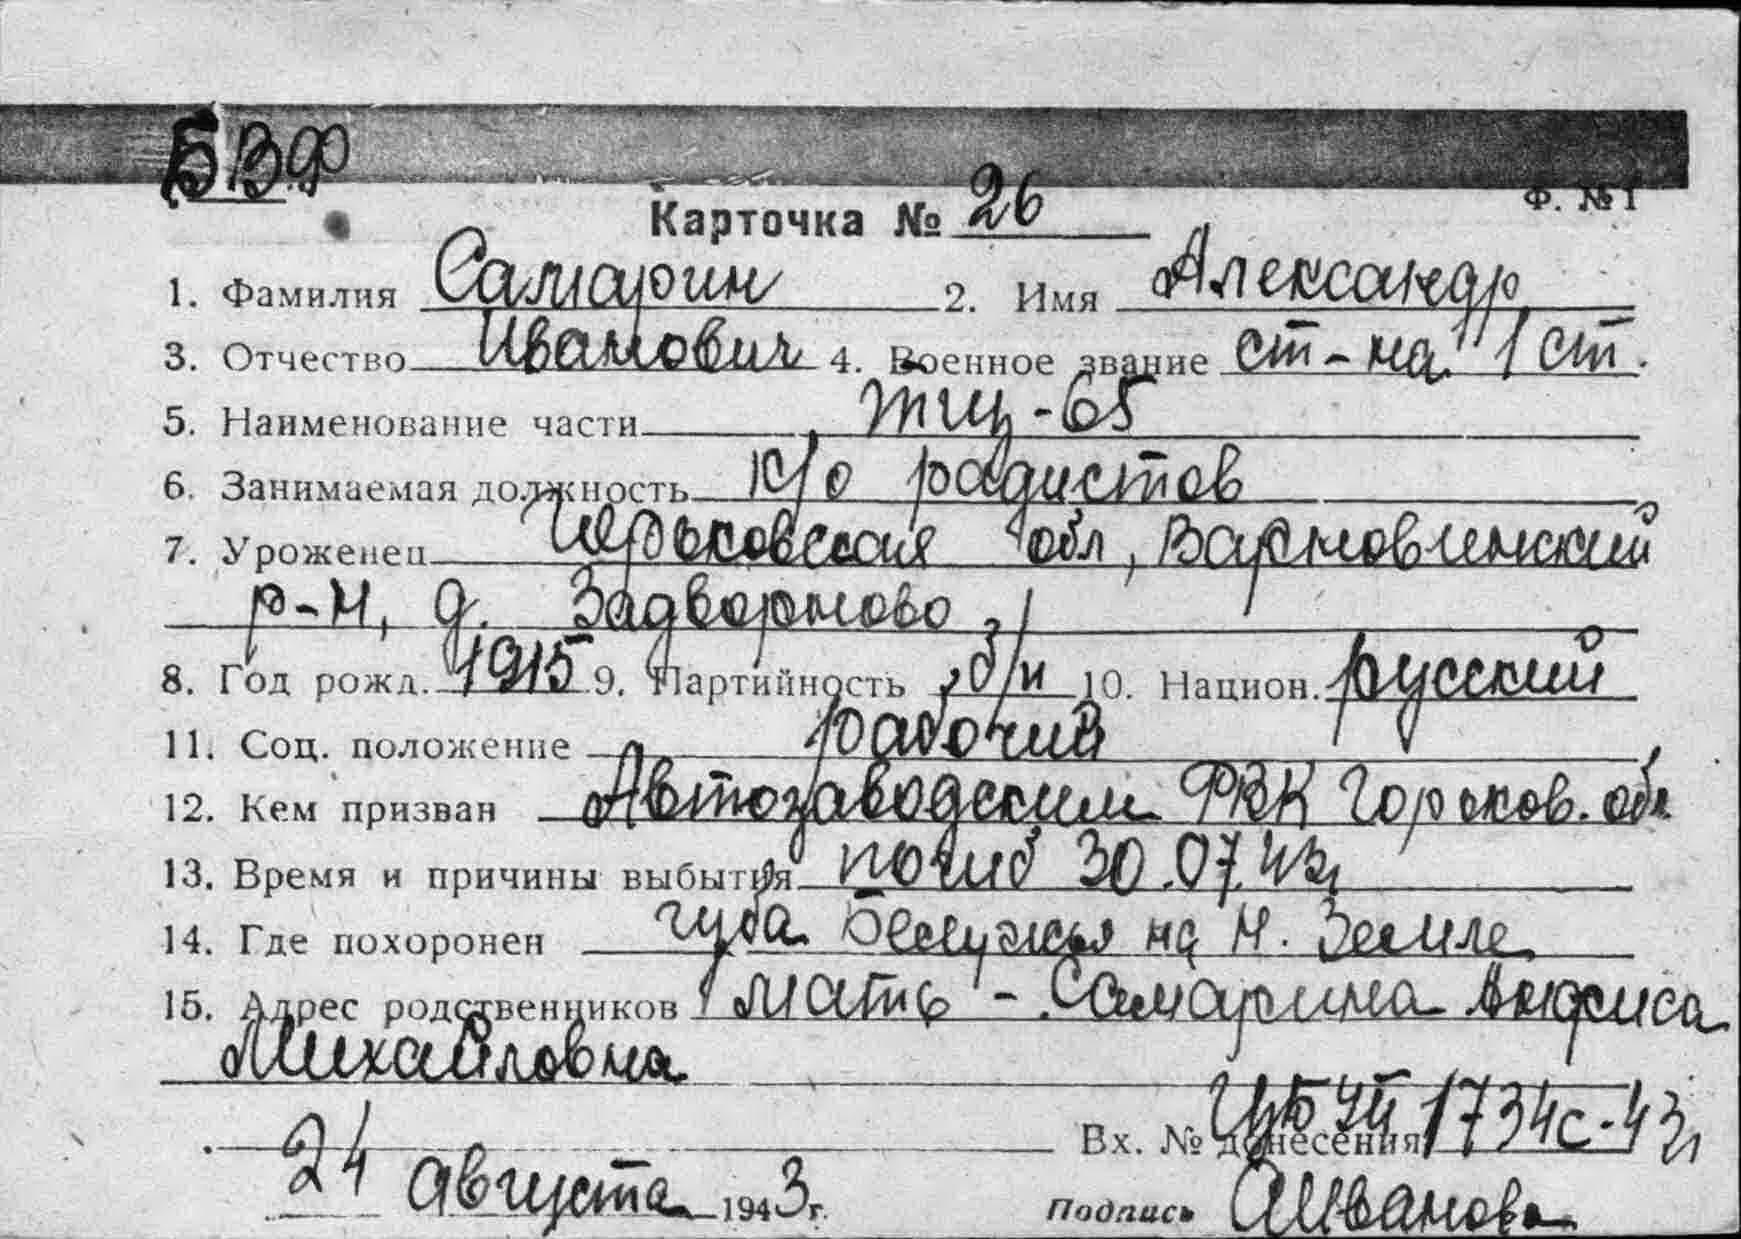 БВФ
Ф. № 1
Карточка № 26
1. Фамилия Самарин 2. Имя Александр
3. Отчество Иванович 4. Военное звание ст-на 1 ст.
5. Наименование части ТЩ-65
6. Занимаемая должность к/о радистов
7. Уроженец обл, Варновинский
р-н, д. Задворново
8. Год рожд. 1915 9. Партийность б/п 10. Национ. русский
11. Соц. положение рабочий
12. Кем призван Автозаводским РВК Горьков. обл
13. Время и причины выбытия погиб 30.07.43г
14. Где похоронен губа Белужья на Н. Земле
15. Адрес родственников мать - Самарина Анфиса
Михайловна
Вх. № донесения 1734с-43г
24 августа 1943 г.
Подпись АИванова